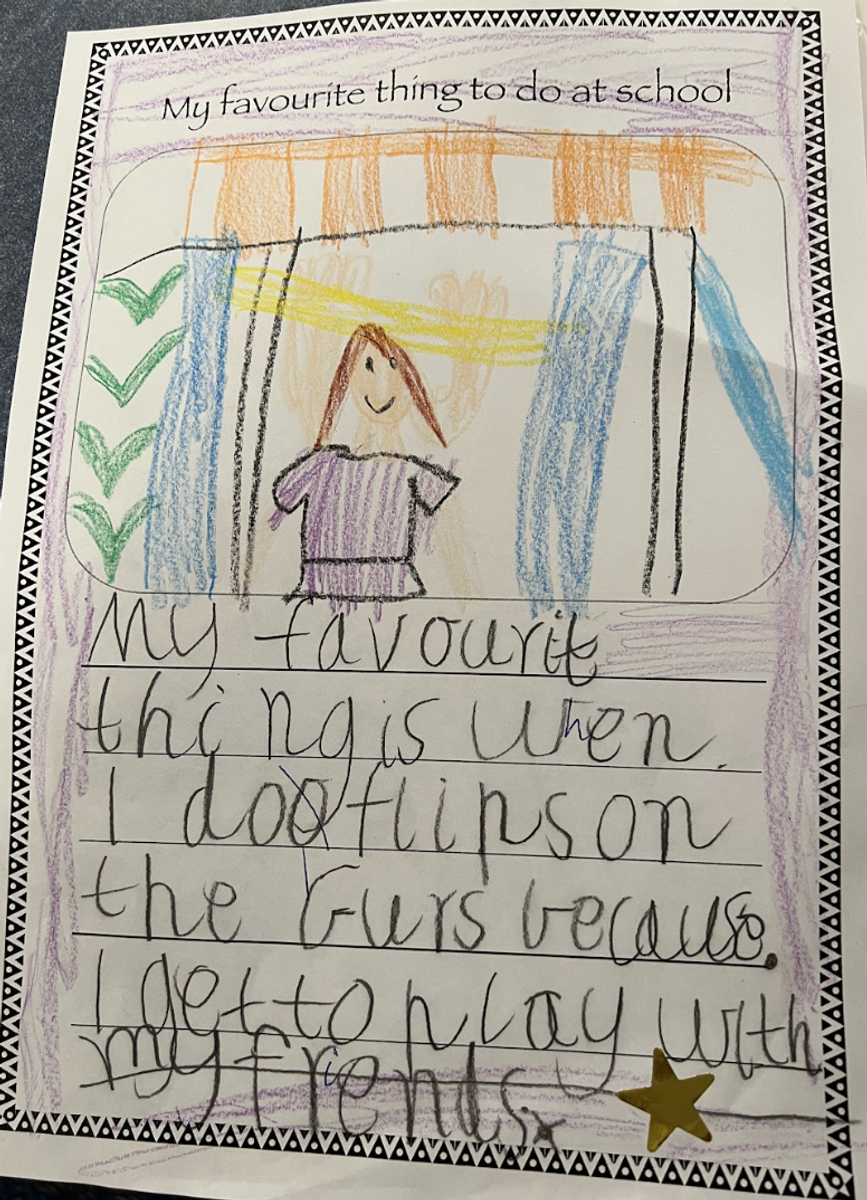 My favourite thing to do at school
My favourit
thing is when.
I do flips on
the Gurs because.
I get to play with
my friends.